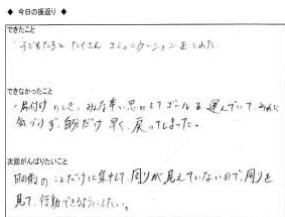 ◆ 今日の振返り ◆
できたこと
・子どもたちと たくさん コミュニケーションを とれた。
できなかったこと
・片付け のとき、みんな 重い 思いして ゴールを 運んでいて、それに
気づけず、自分だけ 早く、戻ってしまった。
次回がんばりたいこと
目の前の ことだけに集中して 周りが 見えていないので、周りを
見て、行動 できるようにしたい。